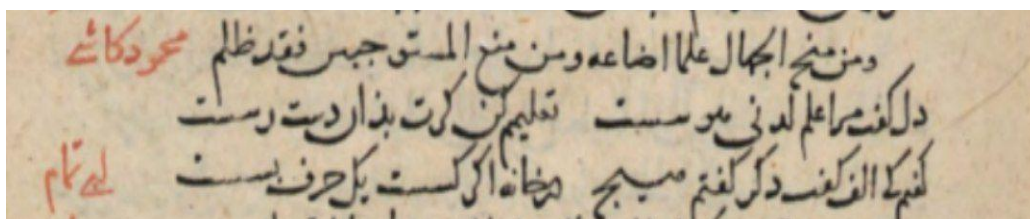 ومن منح الجهال علما اضاعه ومن منع المستوجبين فقد ظلم محمود كاشی
دل گفت مرا علم لدنی هوسست تعلیم کن گرت بذان دست رسست
گفتم که الف گفت دگر گفتم هیچ در خانه اگر کسست یک حرف بسست